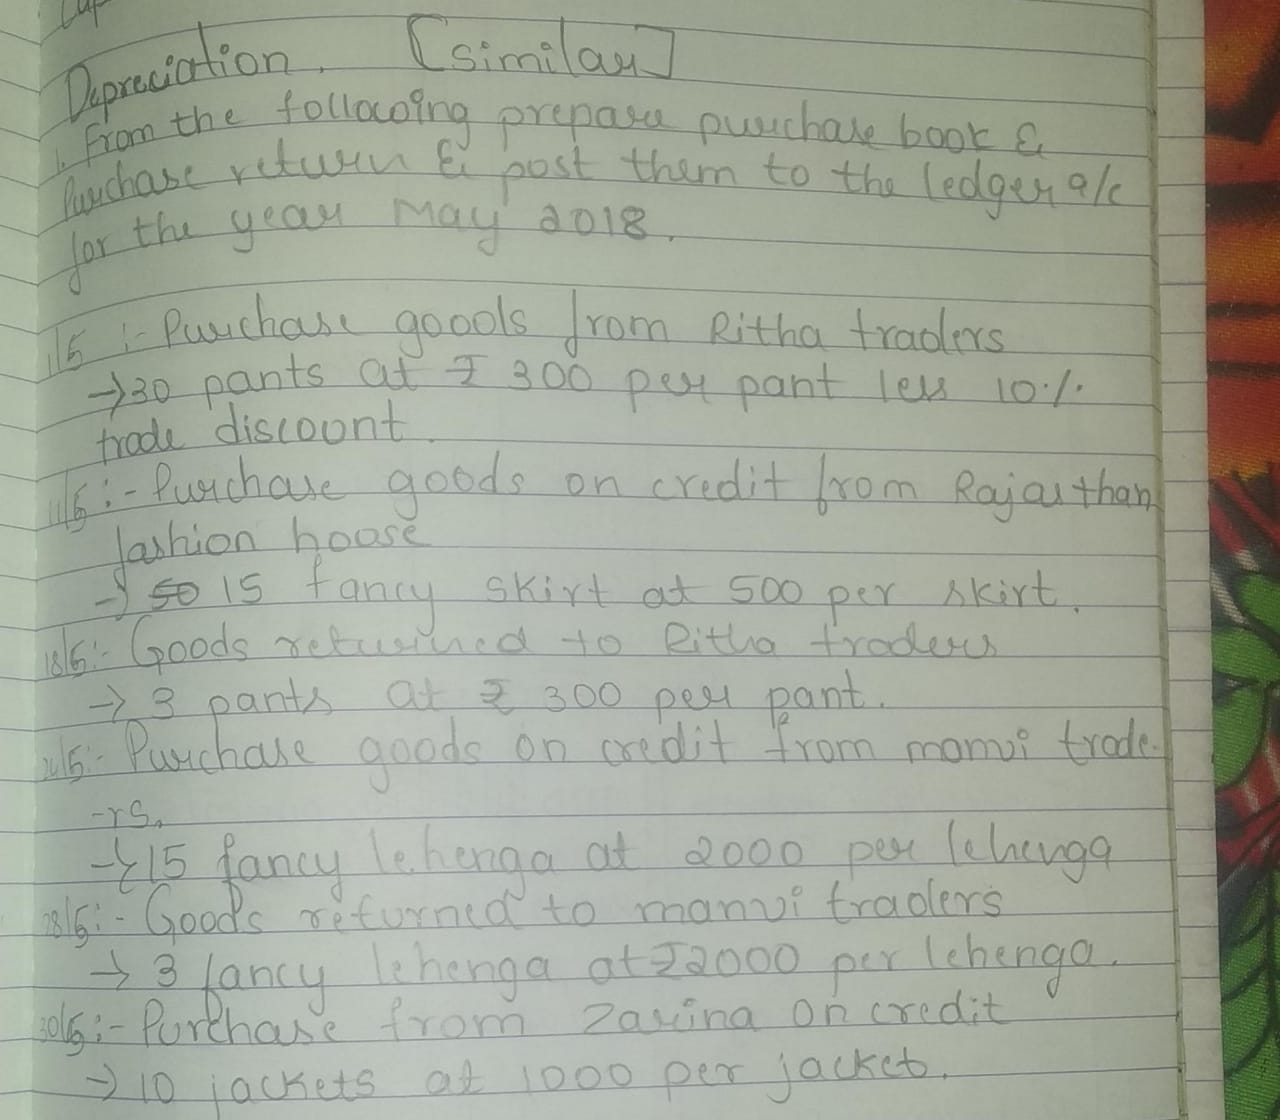 Depreciation. [similar]
1. From the following prepare purchase book &
Purchase return & post them to the ledger a/c
for the year may 2018.
1/5 :- Purchase goods from Ritha traders
→ 30 pants at ₹ 300 per pant less 10%
trade discount.
11/5 :- Purchase goods on credit from Rajasthan
fashion hoose
→ 15 fancy skirt at 500 per skirt.
18/5 :- Goods returned to Ritha traders
→ 3 pants at ₹ 300 per pant.
:- Purchase goods on credit from manvi trade-
-rs.
→ 15 fancy lehenga at 2000 per lehenga
28/5 :- Goods returned to manvi traders
→ 3 fancy lehenga at ₹2000 per lehenga.
30/5 :- Purchase from Zarina on credit
→ 10 jackets at 1000 per jacket.